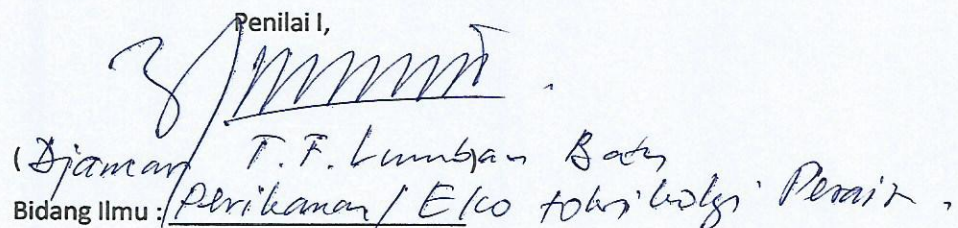 Penilai I,
(Djaman T. F. Lumban Batu
Bidang Ilmu : Perikanan / Eko toksikologi Perair.